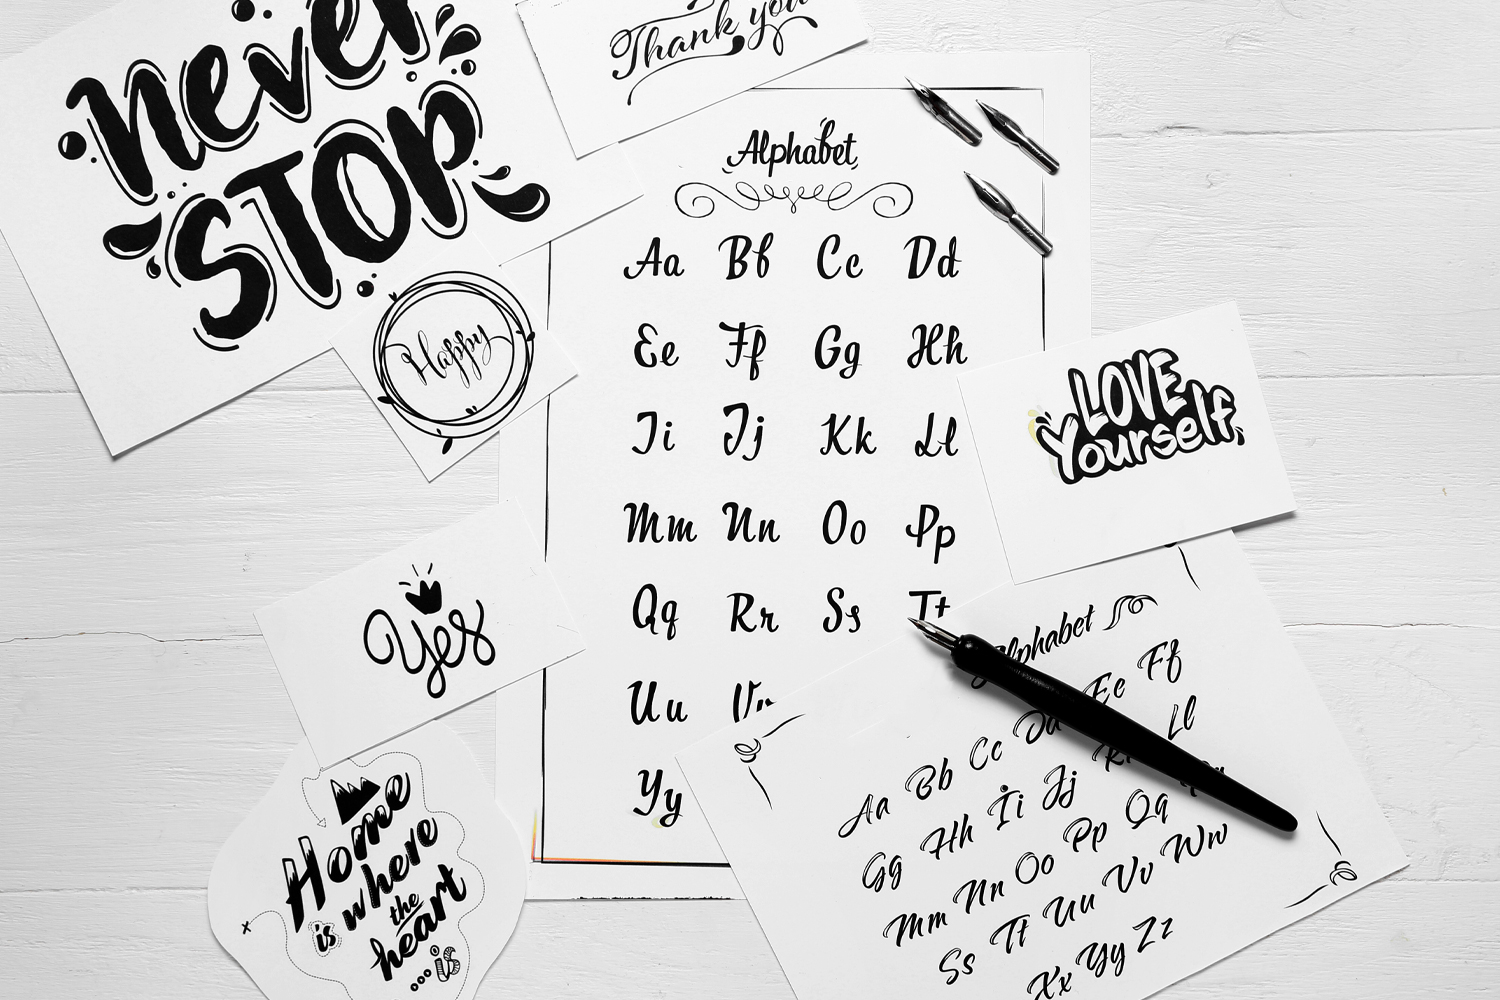 never
STOP
Thank you
Happy
Alphabet
Aa Bb Cc Dd
Ee Ff Gg Hh
Ii Jj Kk Ll
Mm Nn Oo Pp
Qq Rr Ss Tt
Uu
Yy
LOVE
Yourself
Yes
Home
is where
the
heart
...is
Alphabet
Aa Bb Cc Dd Ee Ff
Gg Hh Ii Jj Ll
Mm Nn Oo Pp Qq
Ss Tt Uu Vv Ww
Xx Yy Zz